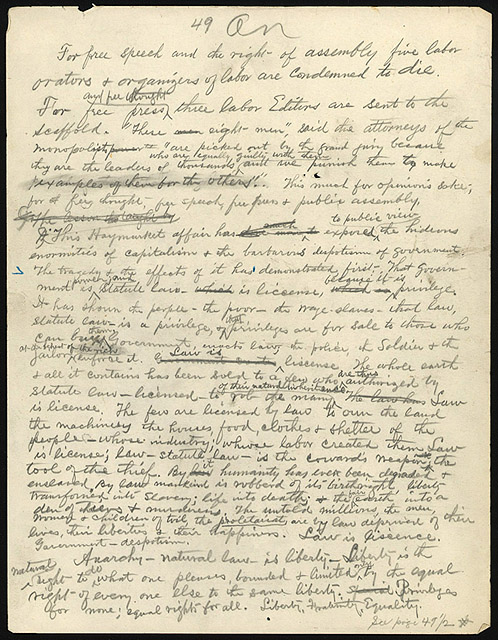 49 On
For free speech and the right of assembly five labor
orators & organizers of labor are condemned to die.
and free thought
For free press, three labor Editors are sent to the
scaffold. "These eight men", said the attorneys of the
monopolists "are picked out by the grand jury because
who are equally guilty with them
they are the leaders of thousands, and we punish them to make
examples of them for the others". This much for opinion's sake,
for free thought, free speech, free press & public assembly.
to public view
This Haymarket affair has exposed, the hideous
enormities of capitalism & the barbarous despotism of government.
The tragedy & the effects of it has demonstrated, first, That Govern-
power, and because it is
ment is, statute law is license, privilege.
It has shown the people - the poor - the wage-slaves - that law,
statute law is a privilege, & that privileges are for sale to those who
can buy them. Government, enacts law, the police, the Soldier & the
jailor enforce it. Law is license. The whole earth
& all it contains has been sold to a few who are thus authorized by
of their natural inheritance.
statute law - licensed - to rob the many Law
is license. The few are licensed by law to own the land
the machinery the houses, food, clothes & shelter of the
people - whose industry, whose labor created them. Law
is license; law - statute law - is the coward's weapon, the
tool of the thief. By it humanity has ever been degraded &
enslaved. By law mankind is robbed of its birthright, liberty
transformed into Slavery; life into death; & the earth into a
den of thieves & murderers. The untold millions, the men,
women & children of toil, the proletariat, are by law deprived of their
lives, their liberties & their happiness. Law is license.
Government - despotism.
Anarchy - natural law - is liberty. Liberty is the
natural
right to do what one pleases, bounded & limited only by the equal
right of every one else to the same liberty. Privileges
for none; equal rights for all. Liberty, Fraternity, Equality.
See page 49 1/2